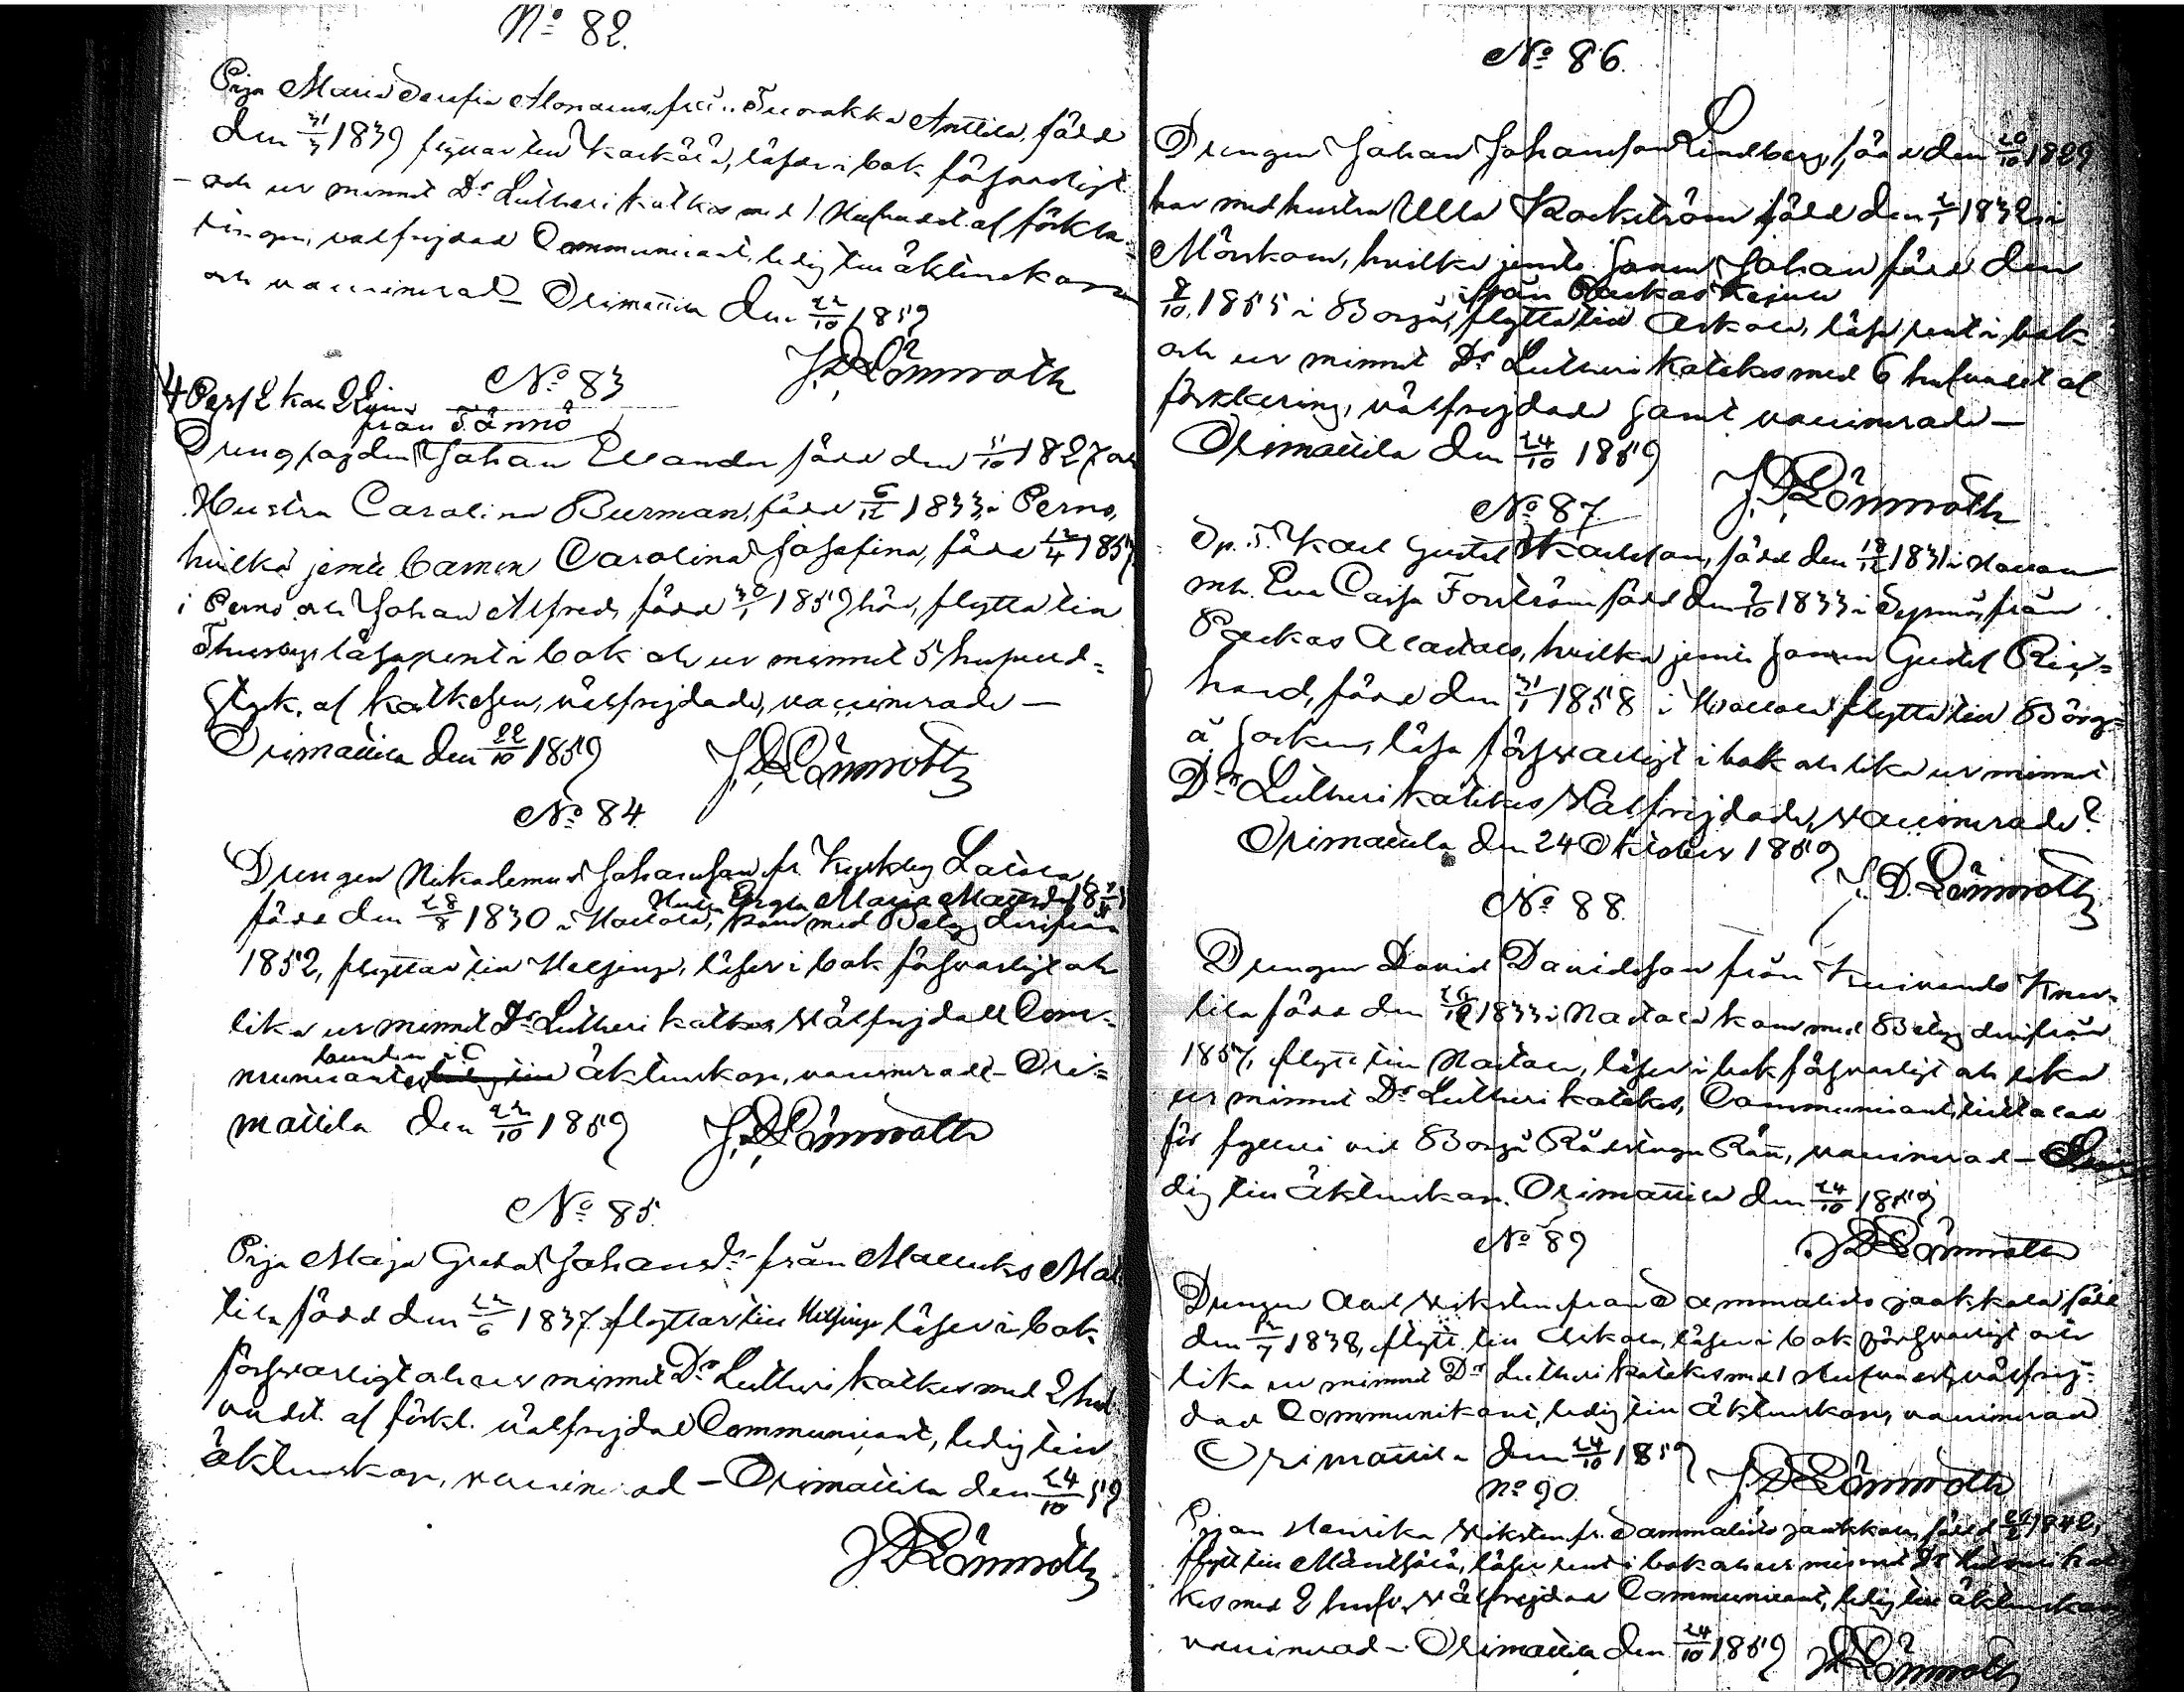 No 82.
Piga Maria Serafia från Anttila, född
den 31/3 1839 flyttar till Kärkölä, läser i bok försvarligt
och ur minnet Dr Lutheri katkes med 1 Hufvudst. af förkla=
ringen, välfrejdad Communicant, ledig till äktenskap
och vaccinerad – Orimattila den 22/10 1859
J. D. Lönnroth
No 83
4 Pers 2 k 2 qv
från Tönnö
Drengfogden Johan Elvander född den 31/10 1827 och
Hustru Carolina Burman, född 6/12 1833 i Perno,
hvilka jemte barnen Carolina Josefina, född 12/4 1857
i Perno och Johan Alfred, född 30/1 1859 här, flytta till
Thusby, läsa rent i bok och ur minnet 5 hufvud=
styk. af katkesen, välfrejdade, vaccinerade –
Orimattila den 22/10 1859
J. D. Lönnroth
No 84.
Drengen Nikodemus Johansson fr.
Hustru Maria
född den 28/8 1830 i Hollola, kom med Betyg derifrån
1852, flyttar till Helsinge, läser i bok försvarligt och
lika ur minnet Dr Lutheri katkes välfrejdad Com=
municant äktenskap, vaccinerad – Ori=
mattila den 22/10 1859 J. D. Lönnroth
No 85.
Piga Maja Greta Johansdr från Mallusjo Mat
tila född den 22/6 1837 flyttar till Helsinge läser i bok
försvarligt och ur minnet Dr Lutheri katkes med 2 huf
vudst. af förkl. välfrejdad Communicant, ledig till
äktenskap, vaccinerad – Orimattila den 24/10 59
J D Lönnroth
No 86.
Drengen Johan Johansson Lindberg, född den 20/10 1829
har med hustru Ulla Rockström född den 2/1 1832 i
Mörskom, hvilka jemte sonen Johan född den
från Packas
8/10 1855 i Borgå, flytta till Askola, läsa rent i bok
och ur minnet Dr Lutheri katekes med 6 hufvudst af
förklaring, välfrejdade samt vaccinerade –
Orimattila den 24/10 1859
J. D. Lönnroth
No 87.
Karl Gustaf Karlsson, född den 18/12 1831 i
mh. Eva Caisa Forström född den 9/10 1833 i från
Packas Alastalo, hvilka jemte sonen Gustaf Rik=
hard, född den 31/1 1858 i flytta till Borg=
å socken, läsa försvarligt i bok och lika ur minnet
Dr Lutheri katekes Välfrejdade, vaccinerade
Orimattila den 24 Oktober 1859
J. D. Lönnroth
No 88.
Drengen David Davidsson från Kuivando
tila född den 26/12 1833 i Nastola kom med Betyg derifrån
1857, flytt. till Nastola, läser i bok försvarligt och lika
ur minnet Dr Lutheri katekes, Communicant, tilltalad
för fylleri vid Borgå Rådstugu Rätt, vaccinerad –
dig till äktenskap. Orimattila den 24/10 1859
J D Lönnroth
No 89
Drengen Axel Wiksten från Sammalisto Jaakkola född
den 12/7 1838, flytt. till Askola, läser i bok försvarligt och
lika ur minnet Dr Lutheri katekes med 1 Hufvudst, välfrej=
dad Communikant, ledig till äktenskap, vaccinerad
Orimattila den 24/10 1859
J. D. Lönnroth
No 90.
Pigan Henrika Wiksten fr. Sammalisto Jaakkola, född 1842,
flytt till Mäntsälä, läser rent i bok och ur minnet Dr Lutheri kat
kes med 2 hufv. välfrejdad Communicant, ledig till äktenskap
vaccinerad – Orimattila den 24/10 1859 J D Lönnroth